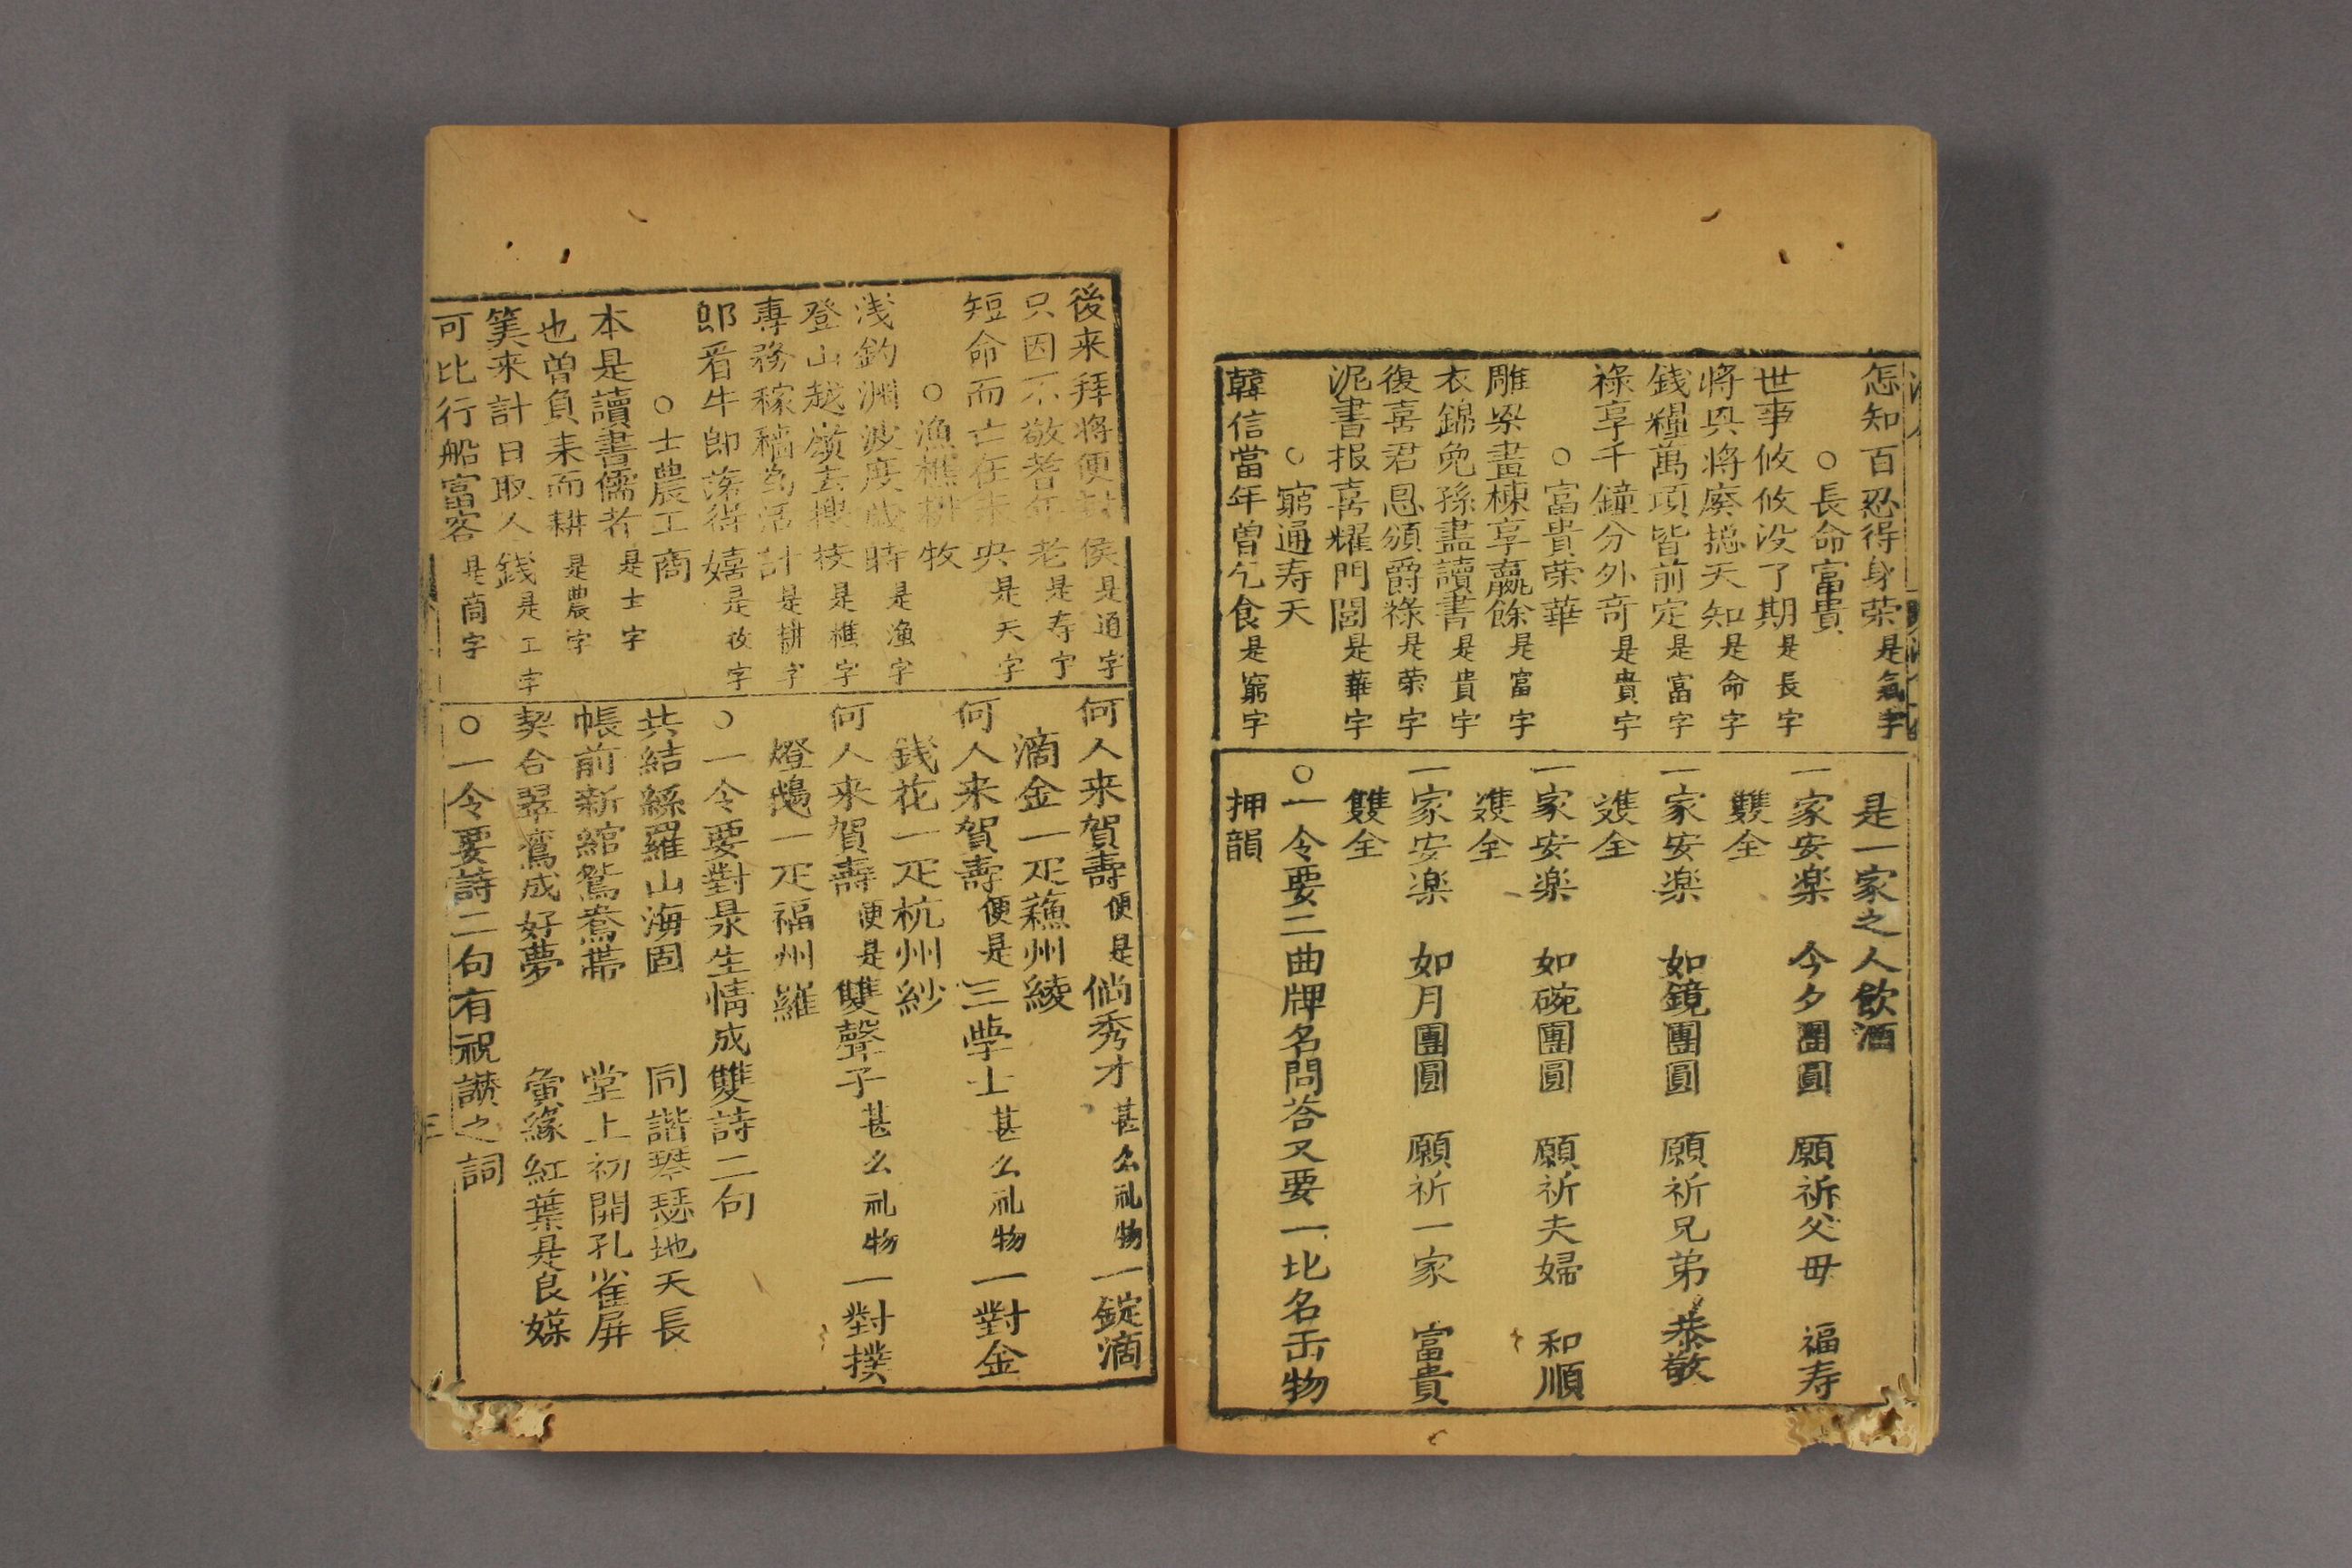 怎知百忍得身荣是氣字
○長命富貴
世事攸攸没了期是長字
将興将廢摠天知是命字
錢糧萬項皆前定是富字
祿享千鐘分外奇是貴字
○富貴荣華
雕梁畫棟享羸餘是富字
衣錦兒孫盡讀書是貴字
復喜君恩頒爵祿是荣字
泥書报喜耀門閭是華字
○窮通寿夭
韓信當年曽乞食是窮字
是一家之人飲酒
一家安楽 今夕團圓 願祈父母 福寿
雙全
一家安楽 如鏡團圓 願祈兄弟 恭敬
雙全
一家安楽 如碗團圓 願祈夫婦 和順
雙全
一家安楽 如月團圓 願祈一家 富貴
雙全
○一令要二曲牌名問荅又要一北名缶物
押韻
後来拜将便封侯是通字
只因不敬耆年老是寿字
短命而亡在未央是夭字
○漁樵耕牧
浅釣渊波度歲時是漁字
登山越嶺去搜柴是樵字
專務稼穡為活計是耕字
郎看牛郎落得嬉是牧字
○士農工商
本是讀書儒者是士字
也曽負耒而耕是農字
筭来計日取人錢是工字
可比行船富客是商字
何人来賀壽便是倘秀才甚么礼物一錠滴
滴金一疋蘓州綾
何人来賀壽便是三學士甚么礼物一對金
錢花一疋杭州紗
何人来賀壽便是雙聲子甚么礼物一對撲
燈蛾一疋福州羅
○一令要對景生情成雙詩二句
共結絲羅山海固 同諧琴瑟地天長
帳前新綰鴛鴦帶 堂上初開孔雀屏
契合翠鸞成好夢 夤緣紅葉是良媒
○一令要詩二句有祝讃之詞